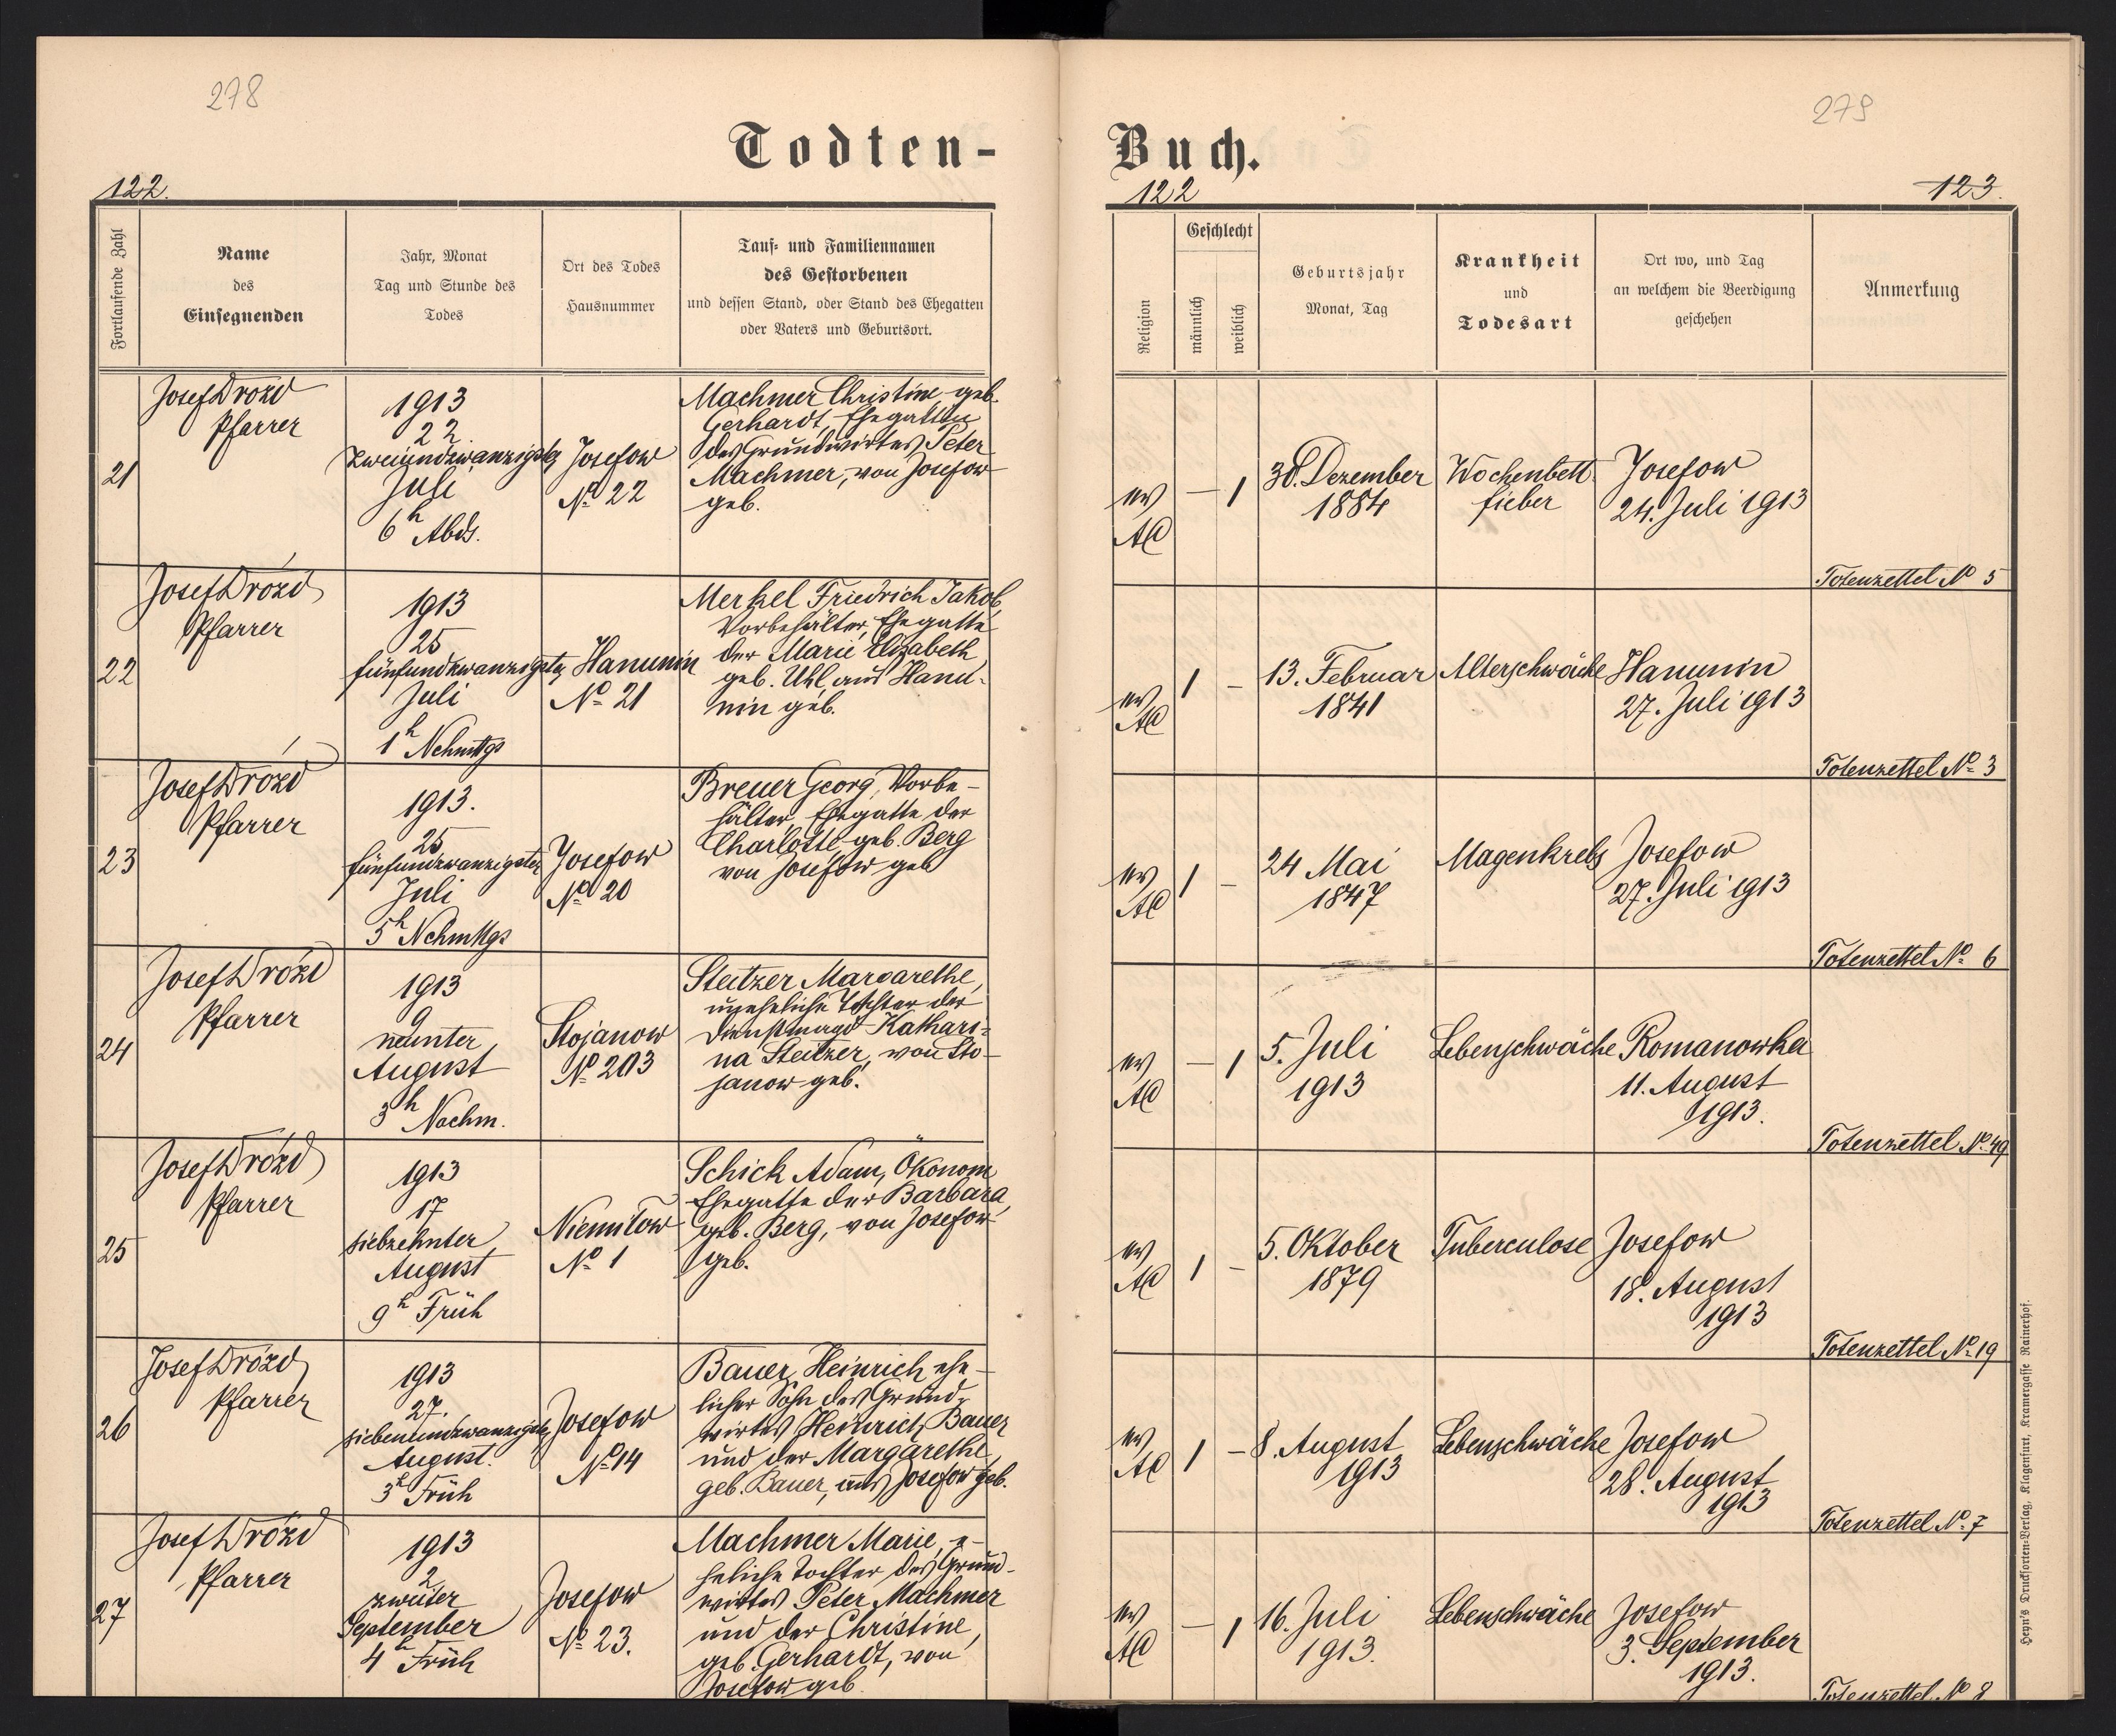 278
279
Todten-
Buch.
122.
122
123.
Fortlaufende Zahl
Name
des
Einsegnenden
Jahr, Monat
Tag und Stunde des
Todes
Ort des Todes
Hausnummer
Tauf- und Familiennamen
des Gestorbenen
und dessen Stand, oder Stand des Ehegatten
oder Vaters und Geburtsort.
Religion
Geschlecht
männlich
weiblich
Geburtsjahr
Monat, Tag
Krankheit
und
Todesart
Ort wo, und Tag
an welchem die Beerdigung
geschehen
Anmerkung
21
Josef Drozd
Pfarrer
1913
22
zweiundzwanzigster
Juli
6h Abds.
Josefow
No 22
Machmer Christine geb.
Gerhardt, Ehegattin
des Grundwirtes Peter
Machmer, von Josefow
geb.
ev
AC
— 1
30. Dezember
1884
Wochenbett
fieber
Josefow
24. Juli 1913
Totenzettel No 5
22
Josef Drózd
Pfarrer
1913
25
fünfundzwanzigster
Juli
1h Nchmttgs
Hanunin
No 21
Merkel Friedrich Jakob,
Vorbehälter, Ehegatte
der Marie Elisabeth
geb. Uhl, aus Hanu-
nin geb.
ev
AC
1 –
13. Februar
1841
Alterschwäche
Hanunin
27. Juli 1913
Totenzettel No 3
23
Josef Drózd
Pfarrer
1913.
25
fünfundzwanzigster
Juli
5h Nchmttgs
Josefow
No 20
Breuer Georg, Vorbe-
hälter, Ehegatte der
Charlotte geb. Berg
von Josefow geb
ev
AC
1 –
24 Mai
1847
Magenkrebs
Josefow
27. Juli 1913
Totenzettel No 6
24
Josef Drózd
Pfarrer
1913
9
neunter
August
3h Nachm.
Stojanow
No 203
Steitzer Margarethe,
uneheliche Tochter der
Dienstmagd Kathari-
na Steitzer, von Sto-
janow geb.
ev
AC
— 1
5. Juli
1913
Lebenschwäche
Romanowka
11. August
1913.
Totenzettel No 49
25
Josef Drózd
Pfarrer
1913
17
siebzehnter
August
9h Früh
Niemilow
No 1
Schick Adam, Ökonom
Ehegatte der Barbara,
geb. Berg, von Josefow
geb.
ev
AC
1 –
5. Oktober
1879
Tuberculose
Josefow
18. August
1913
Totenzettel No 19
26
Josef Drózd
Pfarrer
1913
27.
siebenundzwanzigster
August.
3h Früh
Josefow
No 14
Bauer Heinrich, ehe-
licher Sohn des Grund-
wirtes Heinrich Bauer
und der Margarethe
geb. Bauer, aus Josefow geb.
ev
AC
1 –
8. August
1913
Lebenschwäche
Josefow
28. August
1913
Totenzettel No 7
27
Josef Drózd
Pfarrer
1913
2
zweiter
September
4h Früh
Josefow
No 23.
Machmer Marie, e-
heliche Tochter des Grund-
wirtes Peter Machmer
und der Christine,
geb. Gerhardt, von
Josefow geb.
ev
AC
— 1
16. Juli
1913.
Lebenschwäche
Josefow
3. September
1913.
Totenzettel No 8
Heyn's Drucksorten-Verlag, Klagenfurt, Kramergasse Rainerhof.